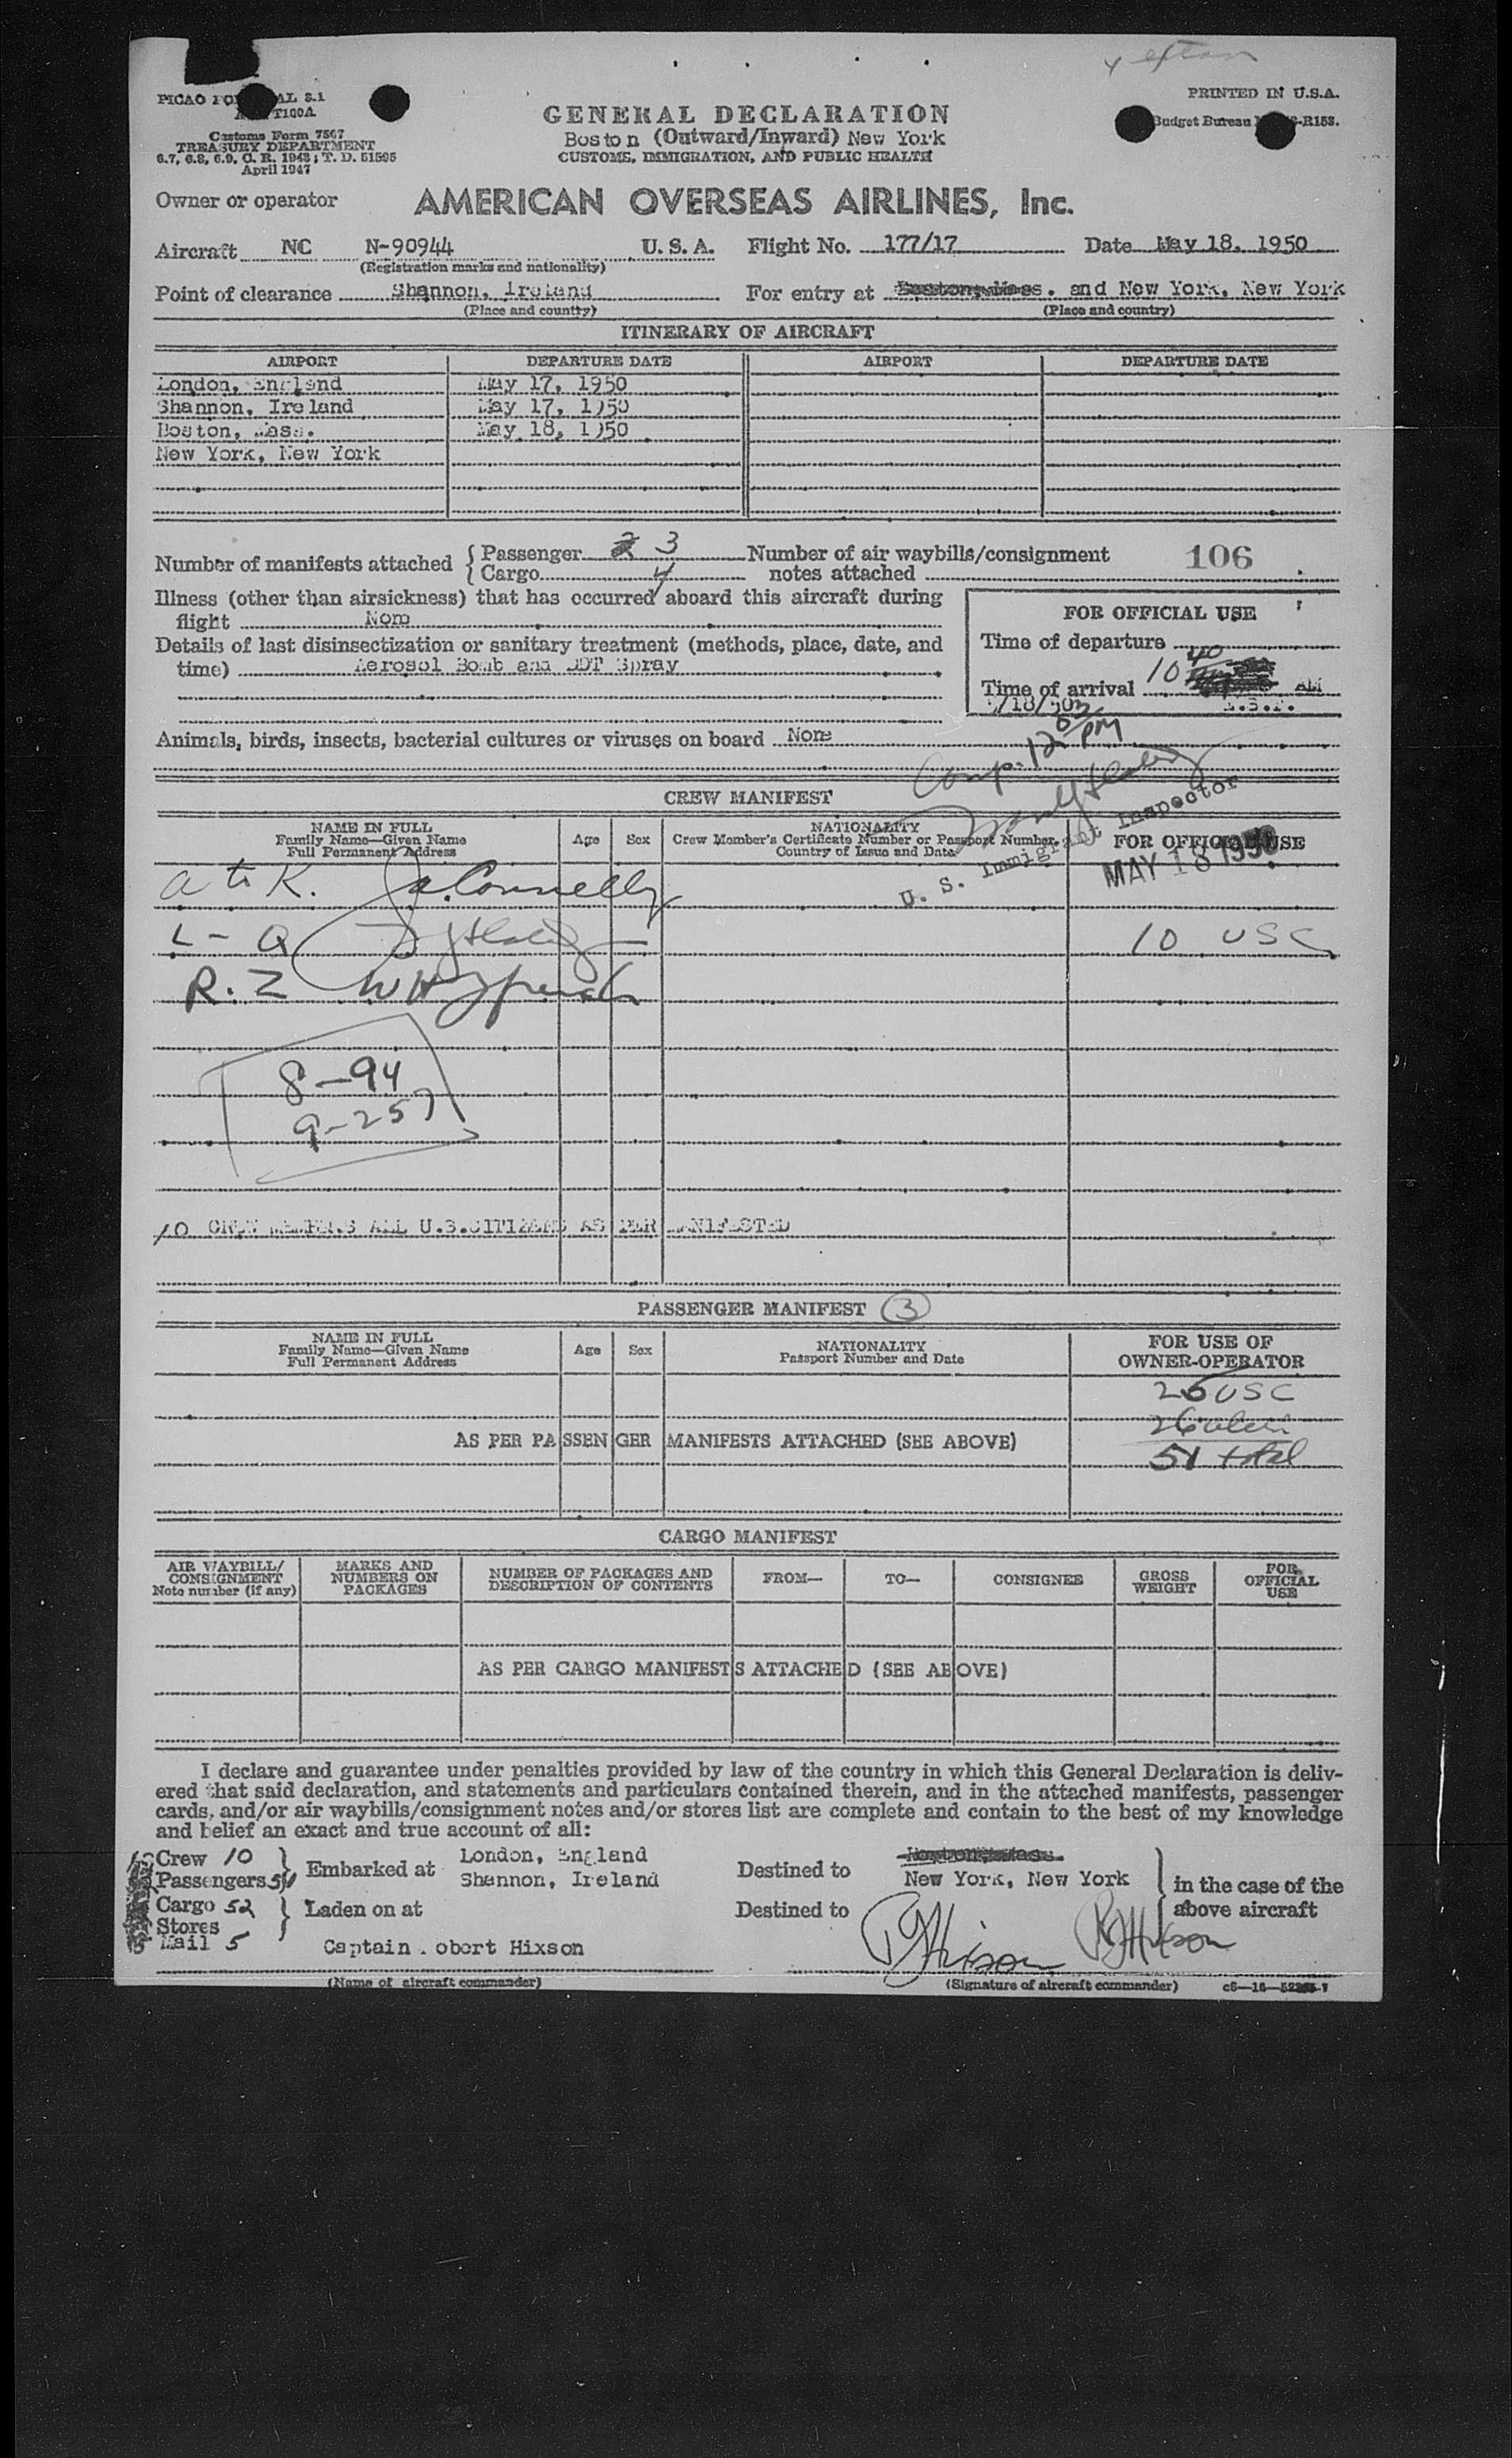 PRINTED IN U.S.A.
Customs Form 7567
TREASURY DEPARTMENT
6.7, 6.8, 6.9, C. R. 1943; T. D. 51595
April 1947
Budget Bureau -R153.
GENERAL DECLARATION
Boston (Outward/Inward) New York
CUSTOMS, IMMIGRATION, AND PUBLIC HEALTH
Owner or operator AMERICAN OVERSEAS AIRLINES, Inc.
Aircraft NC N-90944 U. S. A. Flight No. 177/17 Date May 18, 1950
(Registration marks and nationality)
Point of clearance Shannon, Ireland For entry at and New York, New York
(Place and country) (Place and country)
ITINERARY OF AIRCRAFT
AIRPORT DEPARTURE DATE AIRPORT DEPARTURE DATE
London, England May 17, 1950
Shannon, Ireland May 17, 1950
Boston, Mass. May 18, 1950
New York, New York
Number of manifests attached { Passenger 3 Number of air waybills/consignment 106
{ Cargo 4 notes attached
Illness (other than airsickness) that has occurred aboard this aircraft during
flight None
Details of last disinsectization or sanitary treatment (methods, place, date, and
time) Aerosol Bomb and DDT Spray
FOR OFFICIAL USE
Time of departure
Time of arrival 10 40 AM
5/18/50 E.S.T.
Animals, birds, insects, bacterial cultures or viruses on board None
Comp. 12 03 PM
U. S. Immigrant Inspector
MAY 18 1950
CREW MANIFEST
NAME IN FULL
Family Name—Given Name
Full Permanent Address
Age Sex
NATIONALITY
Crew Member's Certificate Number or Passport Number,
Country of Issue and Date
FOR OFFICIAL USE
A to K. Connelly
L - Q 10 USC
R. Z
8-94
9-257
10 CREW MEMBERS ALL U.S.CITIZENS AS PER MANIFESTED
PASSENGER MANIFEST 3
NAME IN FULL
Family Name—Given Name
Full Permanent Address
Age Sex
NATIONALITY
Passport Number and Date
FOR USE OF
OWNER-OPERATOR
25 USC
26 alien
51 total
AS PER PASSENGER MANIFESTS ATTACHED (SEE ABOVE)
CARGO MANIFEST
AIR WAYBILL/
CONSIGNMENT
Note number (if any)
MARKS AND
NUMBERS ON
PACKAGES
NUMBER OF PACKAGES AND
DESCRIPTION OF CONTENTS
FROM— TO— CONSIGNEE
GROSS
WEIGHT
FOR
OFFICIAL
USE
AS PER CARGO MANIFESTS ATTACHED (SEE ABOVE)
I declare and guarantee under penalties provided by law of the country in which this General Declaration is deliv-
ered that said declaration, and statements and particulars contained therein, and in the attached manifests, passenger
cards, and/or air waybills/consignment notes and/or stores list are complete and contain to the best of my knowledge
and belief an exact and true account of all:
Crew 10
Passengers 51
Embarked at London, England
Shannon, Ireland
Destined to New York, New York
in the case of the
above aircraft
Cargo 52
Stores
Mail 5
Laden on at
Destined to
Captain obert Hixson
(Name of aircraft commander)
(Signature of aircraft commander)